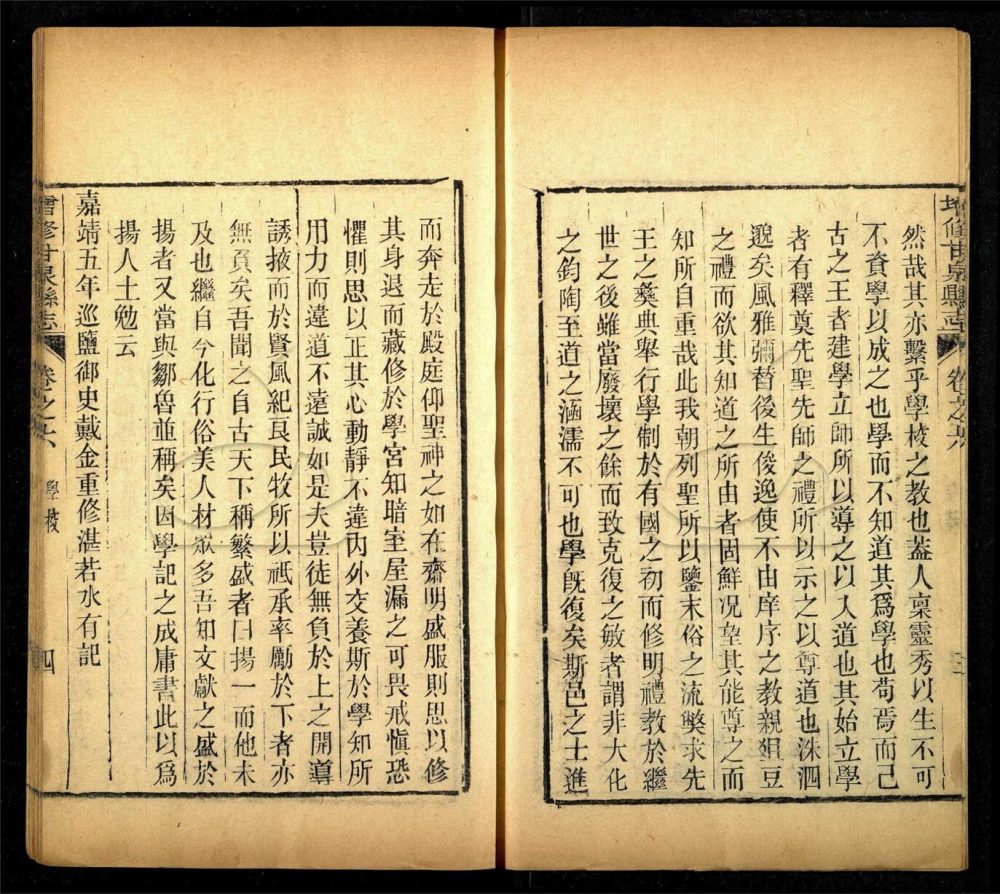 增修甘泉縣志
卷之六
然哉其亦繫乎學校之教也蓋人稟靈秀以生不可
不資學以成之也學而不知道其爲學也苟焉而已
古之王者建學立師所以導之以入道也其始立學
者有釋奠先聖先師之禮所以示之以尊道也洙泗
邈矣風雅彌替後生俊逸使不由庠序之教親俎豆
之禮而欲其知道之所由者固鮮况望其能尊之而
知所自重哉此我朝列聖所以鑒末俗之流獘求先
王之彜典舉行學制於有國之初而修明禮教於繼
世之後雖當廢壞之餘而致克復之敏者謂非大化
之鈞陶至道之涵濡不可也學旣復矣斯邑之士進
而奔走於殿庭仰聖神之如在齋明盛服則思以修
其身退而藏修於學宮知暗室屋漏之可畏戒慎恐
懼則思以正其心動靜不違內外交養斯於學知所
用力而違道不遠誠如是夫豈徒無負於上之開導
誘掖而於賢風紀良民牧所以祇承率勵於下者亦
無負矣吾聞之自古天下稱繁盛者曰揚一而他未
及也繼自今化行俗美人材衆多吾知文獻之盛於
揚者又當與鄒魯並稱矣因學記之成庸書此以爲
揚人士勉云
嘉靖五年巡鹽御史戴金重修湛若水有記
增修甘泉縣志
卷之六
學校
四